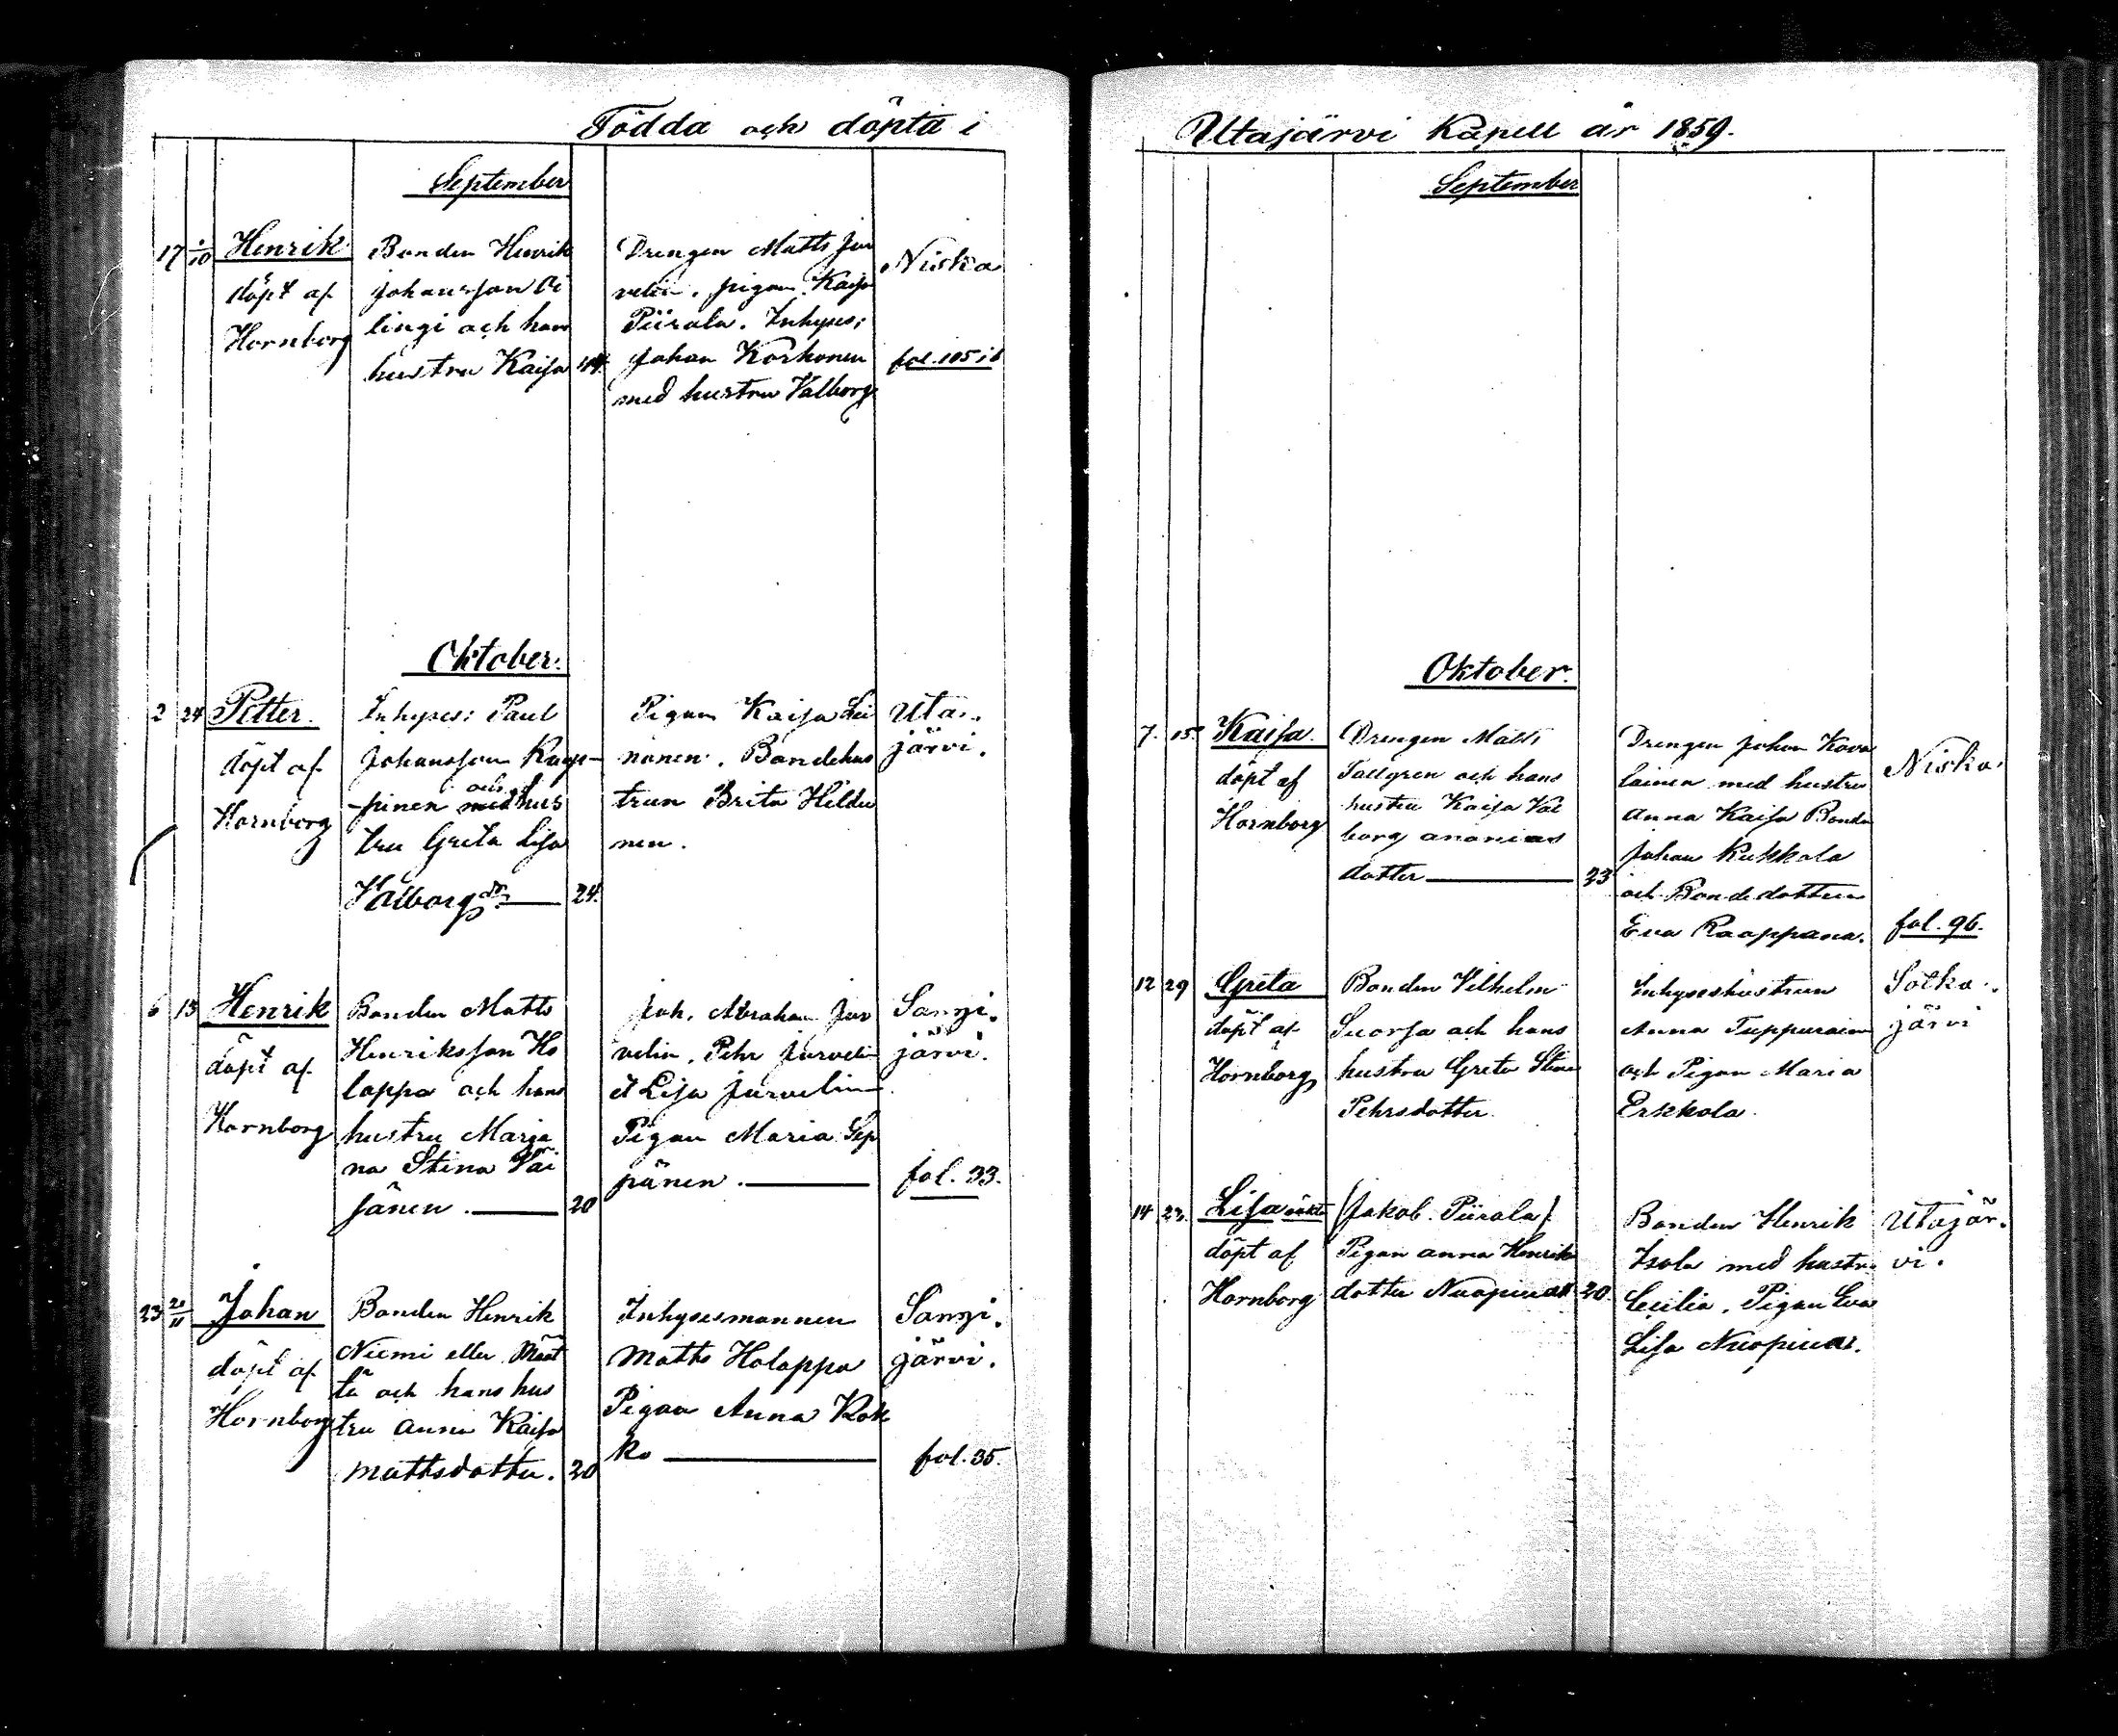 Födda och döpta i
September
17 1/10 Henrik
döpt af
Hornborg
Bonden Henrik
Johansson Oi
lingi och hans
hustru Kaisa 44.
Drengen Matts Jur
velin. pigan Kaisa
Piirala. Inhyses:
Johan Korhonen
med hustru Valborg
Niska
fol. 105 i b
Oktober.
2 24 Petter.
döpt af
Hornborg
Inhyses: Paul
Johansson
och
pinen med hus
tru Greta Lisa
Valborgsdr 24.
Pigan Kaisa Lei
nonen. Bondehus
trun Brita Heldu
nen.
Uta-
järvi.
6 13 Henrik
döpt af
Hornborg
Bonden Matts
Henriksson Ho
lappa och hans
hustru Marja
na Stina Väi
sänen. 20
Joh. Abraham Jur
velin, Pehr Jurvelin
et Lisa Jurvelin
Pigan Maria Lep
pänen.
Sangi.
järvi.
fol. 33.
23 20/11 Johan
döpt af
Hornborg
Bonden Henrik
Niemi eller Määt
tä och hans hus
tru Anna Kaisa
Mattsdotter. 20
Inhysesmannen
Matts Holappa
Pigan Anna Kok
ko
Sangi.
järvi.
fol. 35.
Utajärvi Kapell år 1859.
September
Oktober.
7. 15. Kaisa.
döpt af
Hornborg
Drengen Matts
Tallgren och hans
hustru Kaisa Val
borg Ananias
dotter 23
Drengen Johan Kova
lainen med hustru
Anna Kaisa Bonden
Johan Kukkola
och Bondedottern
Eva Raappana.
Niska.
fol. 96.
12 29 Greta
döpt af
Hornborg
Bonden Vilhelm
Suorsa och hans
hustru Greta Stina
Pehrsdotter.
Inhyseshustrun
Anna Tuppurainen
och Pigan Maria
Erkkola.
Sotka-
järvi
14 23. Lisa oäkta
döpt af
Hornborg
/Jakob Piirala/.
Pigan Anna Henriks
dotter Nuopinen 20.
Bonden Henrik
Isola med hustru
Cecilia. Pigan Eva
Lisa Nuopinen.
Utajär-
vi.